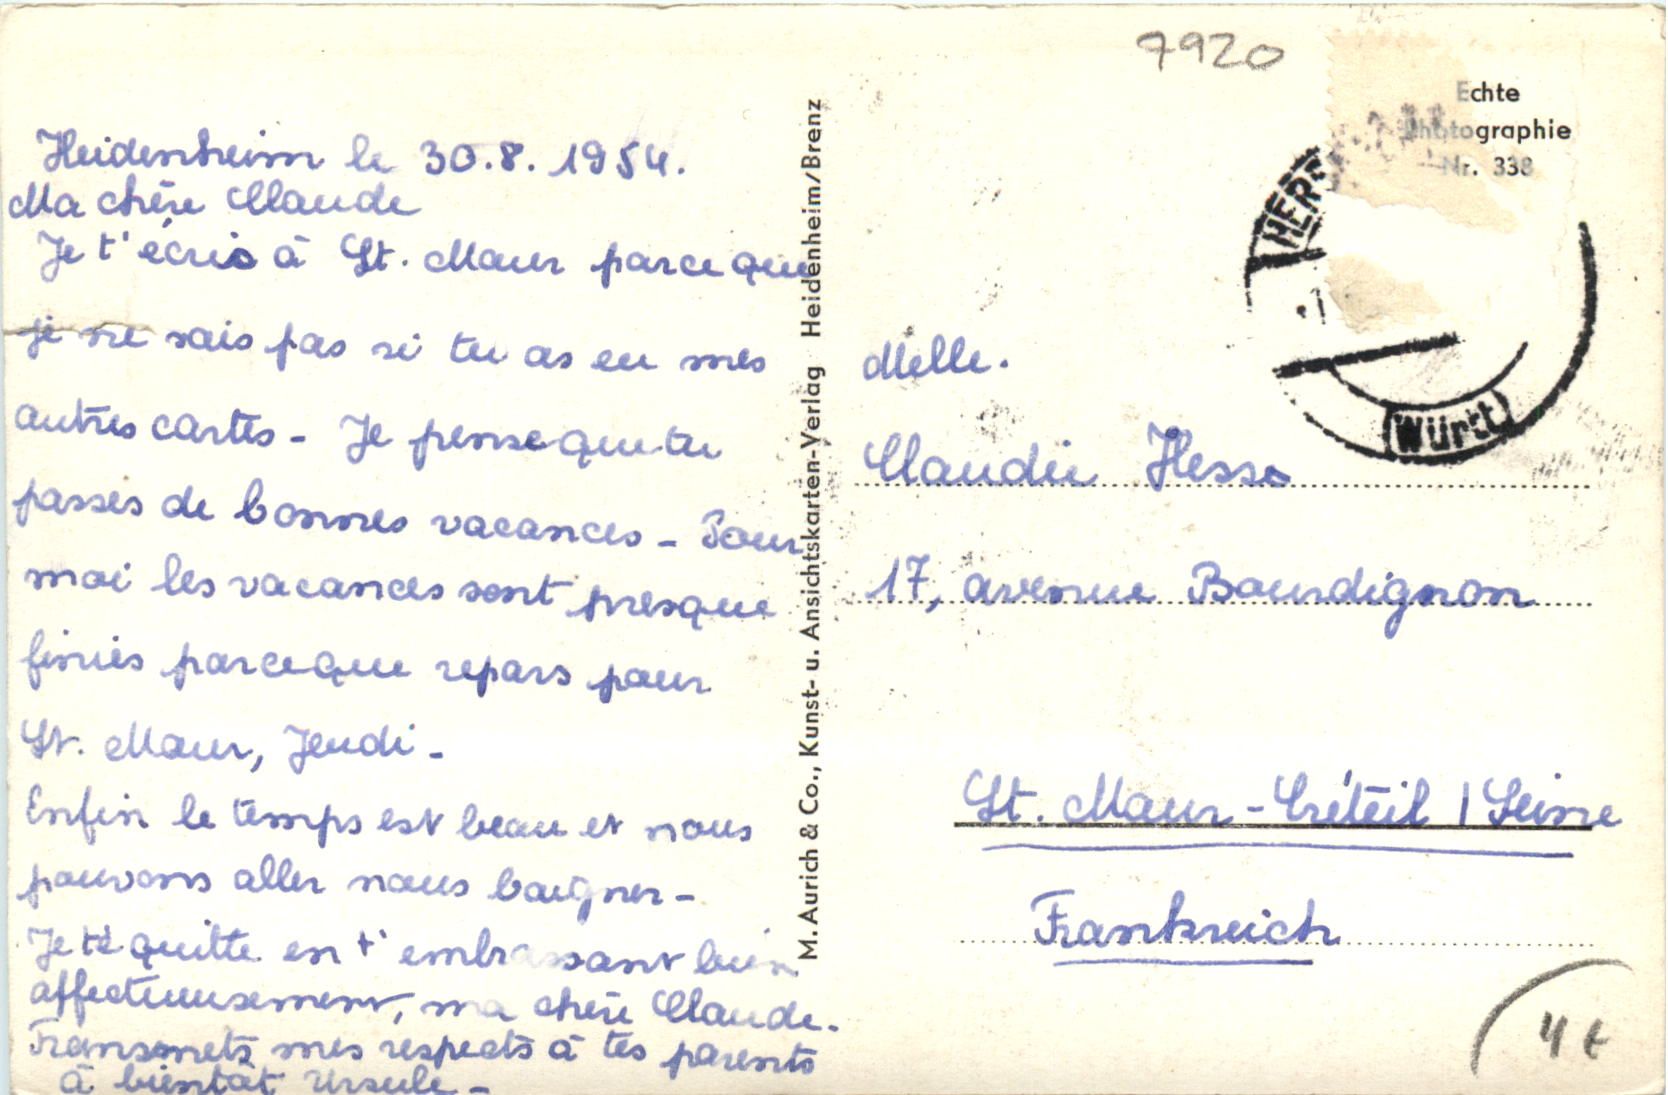 Heidenheim le 30.8.1954.
Ma chère Claude
Je t'écris à St. Maur parce que
je ne sais pas si tu as eu mes
autres cartes - Je pense que tu
passes de bonnes vacances - Pour
moi les vacances sont presque
finies parceque repars pour
St. Maur, Jeudi -
Enfin le temps est beau et nous
pouvons aller nous baigner -
Je te quitte en t'embrassant bien
affectueusement, ma chère Claude.
Transmets mes respects à tes parents
à bientôt Ursule -
M. Aurich & Co., Kunst- u. Ansichtskarten-Verlag Heidenheim/Brenz
7920
Echte
Photographie
Nr. 338
(Württ)
Melle.
Claudie Hesse
17, avenue Bourdignon
St. Maur - Créteil / Seine
Frankreich